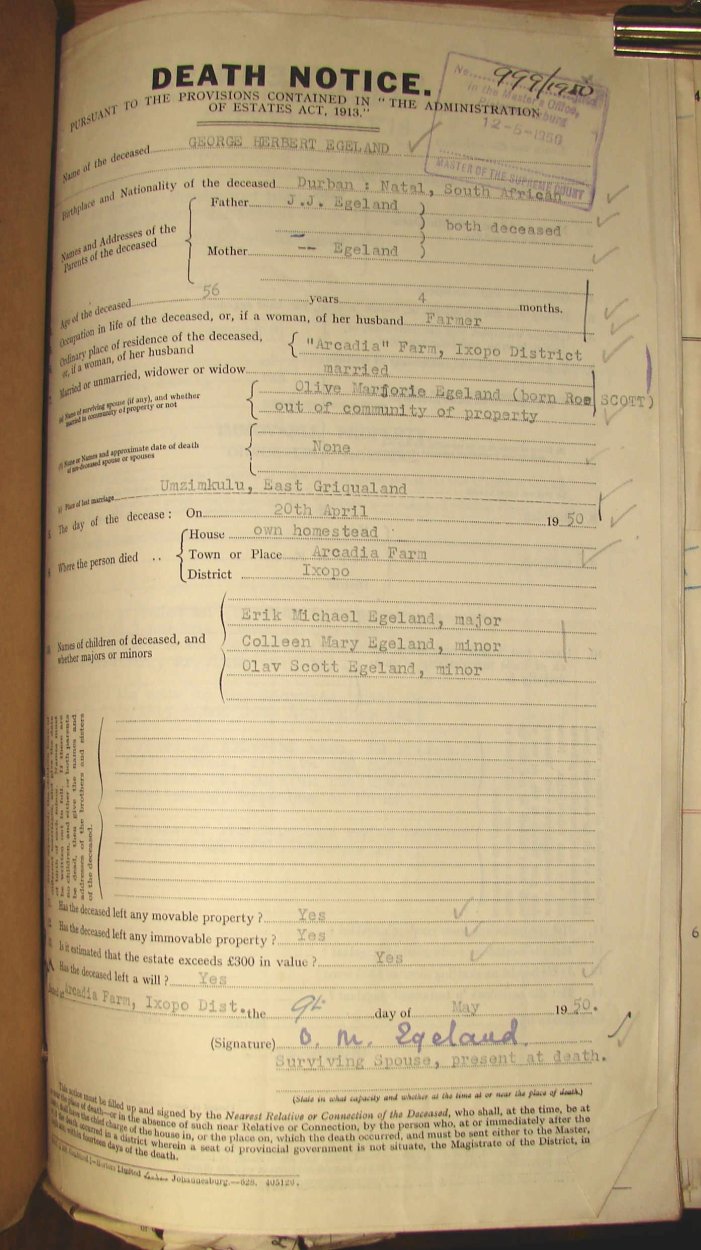 DEATH NOTICE.
PURSUANT TO THE PROVISIONS CONTAINED IN "THE ADMINISTRATION
OF ESTATES ACT, 1913."
No. 999/1950
in the Master's Office,
12-5-1950
MASTER OF THE SUPREME COURT
Name of the deceased GEORGE HERBERT EGELAND
Birthplace and Nationality of the deceased Durban : Natal, South African
Names and Addresses of the Parents of the deceased
Father J.J. Egeland )
) both deceased
Mother -- Egeland )
Age of the deceased 56 years 4 months.
Occupation in life of the deceased, or, if a woman, of her husband Farmer
Ordinary place of residence of the deceased, or, if a woman, of her husband "Arcadia" Farm, Ixopo District
Married or unmarried, widower or widow married
(a) Name of surviving spouse (if any), and whether married in community of property or not
Olive Marjorie Egeland (born Roe SCOTT)
out of community of property
(b) Name or Names and approximate date of death of pre-deceased spouse or spouses
None
(c) Place of last marriage Umzimkulu, East Griqualand
The day of the decease : On 20th April 1950
Where the person died ..
House own homestead
Town or Place Arcadia Farm
District Ixopo
Names of children of deceased, and whether majors or minors
Erik Michael Egeland, major
Colleen Mary Egeland, minor
Olav Scott Egeland, minor
be written out in full. If there are
no children, and either or both parents
be dead, then give the names and
addresses of the brothers and sisters
of the deceased.
Has the deceased left any movable property ? Yes
Has the deceased left any immovable property ? Yes
Is it estimated that the estate exceeds £300 in value ? Yes
Has the deceased left a will ? Yes
Dated at Arcadia Farm, Ixopo Dist. the 9th day of May 1950.
(Signature) O. M. Egeland.
Surviving Spouse, present at death.
(State in what capacity and whether at the time at or near the place of death.)
This notice must be filled up and signed by the Nearest Relative or Connection of the Deceased, who shall, at the time, be at
or near the place of death—or in the absence of such near Relative or Connection, by the person who, at or immediately after the
death shall have the chief charge of the house in, or the place on, which the death occurred, and must be sent either to the Master,
or, if the death occurred in a district wherein a seat of provincial government is not situate, the Magistrate of the District, in
within fourteen days of the death.
Limited Johannesburg.—628. 405120.
4
6